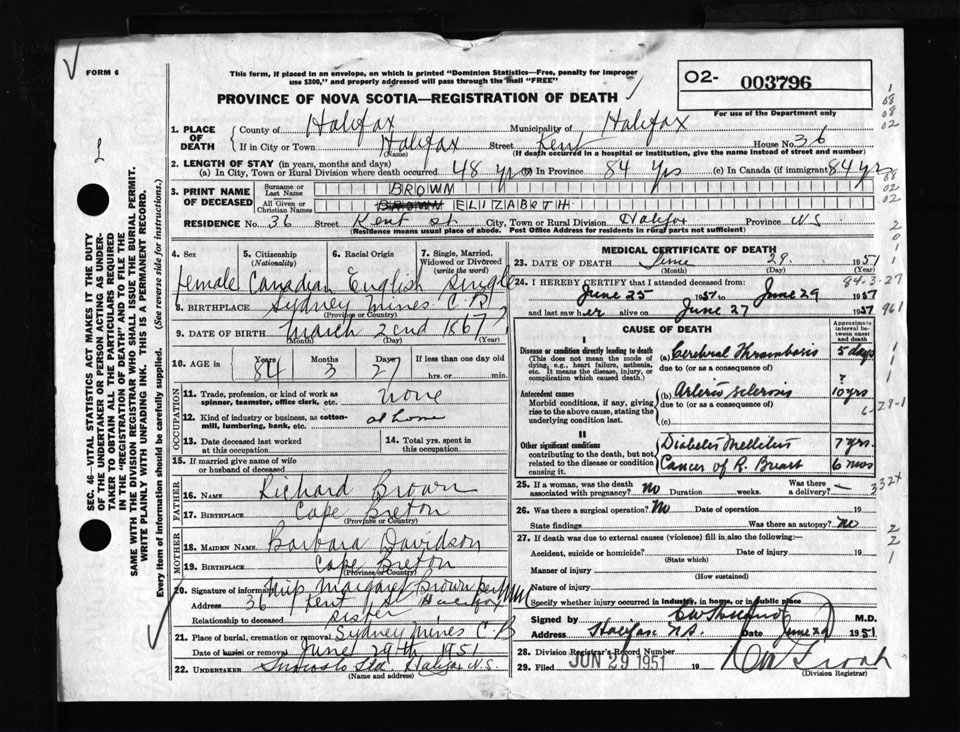 FORM 6
This form, if placed in an envelope, on which is printed "Dominion Statistics—Free, penalty for improper
use $300," and properly addressed will pass through the mail "FREE"
PROVINCE OF NOVA SCOTIA—REGISTRATION OF DEATH
O2- 003796
For use of the Department only
1. PLACE OF DEATH { County of Halifax Municipality of Halifax
If in City or Town Halifax Street Kent House No. 36
(Name) (If death occurred in a hospital or institution, give the name instead of street and number)
2. LENGTH OF STAY (in years, months and days)
(a) In City, Town or Rural Division where death occurred 48 yrs (b) In Province 84 yrs (c) In Canada (if immigrant) 84 yrs
3. PRINT NAME OF DECEASED { Surname or Last Name BROWN
All Given or Christian Names BROWN ELIZABETH
RESIDENCE No. 36 Street Kent St. City, Town or Rural Division Halifax Province N.S.
(Residence means usual place of abode. Post Office Address for residents in rural parts not sufficient)
SEC. 46—VITAL STATISTICS ACT MAKES IT THE DUTY
OF THE UNDERTAKER OR PERSON ACTING AS UNDER-
TAKER TO OBTAIN ALL THE PARTICULARS REQUIRED
IN THE "REGISTRATION OF DEATH" AND TO FILE THE
SAME WITH THE DIVISION REGISTRAR WHO SHALL ISSUE THE BURIAL PERMIT.
WRITE PLAINLY WITH UNFADING INK. THIS IS A PERMANENT RECORD.
Every item of information should be carefully supplied. (See reverse side for instructions.)
4. Sex 5. Citizenship (Nationality) 6. Racial Origin 7. Single, Married, Widowed or Divorced (write the word)
Female Canadian English Single
8. BIRTHPLACE Sydney Mines C.B.
(Province or Country)
9. DATE OF BIRTH March 2cnd 1867
(Month) (Day) (Year)
10. AGE in Years 84 Months 3 Days 27 If less than one day old
hrs. or min.
OCCUPATION
11. Trade, profession, or kind of work as spinner, teamster, office clerk, etc. none
12. Kind of industry or business, as cotton-mill, lumbering, bank, etc. at home
13. Date deceased last worked at this occupation
14. Total yrs. spent in this occupation
15. If married give name of wife or husband of deceased
FATHER
16. NAME Richard Brown
17. BIRTHPLACE Cape Breton
(Province or Country)
MOTHER
18. MAIDEN NAME Barbara Davidson
19. BIRTHPLACE Cape Breton
(Province or Country)
20. Signature of informant Miss Margaret Brown per
Address 36 Kent St Halifax
Relationship to deceased sister
21. Place of burial, cremation or removal Sydney Mines C B
Date of burial or removal June 29th 1951
22. UNDERTAKER Ltd. Halifax N.S.
(Name and address)
MEDICAL CERTIFICATE OF DEATH
23. DATE OF DEATH June 29 1951
(Month) (Day) (Year)
84-3-27
24. I HEREBY CERTIFY that I attended deceased from:
June 25 1951 to June 29 1951
and last saw her alive on June 27 1951 961
CAUSE OF DEATH
Approximate interval between onset and death
I
Disease or condition directly leading to death (a) Cerebral Thrombosis 5 days
(This does not mean the mode of dying, e.g., heart failure, asthenia, etc. It means the disease, injury, or complication which caused death.)
due to (or as a consequence of)
?
Antecedent causes (b) Arterio sclerosis 10 yrs
Morbid conditions, if any, giving rise to the above cause, stating the underlying condition last.
due to (or as a consequence of)
(c)
6-29-1
II
Other significant conditions Diabetes Mellitus 7 yrs.
contributing to the death, but not related to the disease or condition causing it. Cancer of R. Breast 6 mos
25. If a woman, was the death associated with pregnancy? No Duration weeks. Was there a delivery? — 332X
26. Was there a surgical operation? No Date of operation 19
State findings Was there an autopsy? No
27. If death was due to external causes (violence) fill in also the following:—
Accident, suicide or homicide? Date of injury 19
(State which)
Manner of injury
(How sustained)
Nature of injury
Specify whether injury occurred in industry, in home, or in public place
Signed by M.D.
Address Halifax N.S. Date June 29 1951
28. Division Registrar's Record Number
29. Filed JUN 29 1951 19
(Division Registrar)